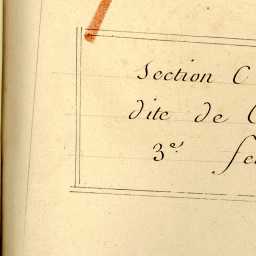 Section C
dite de
3e.